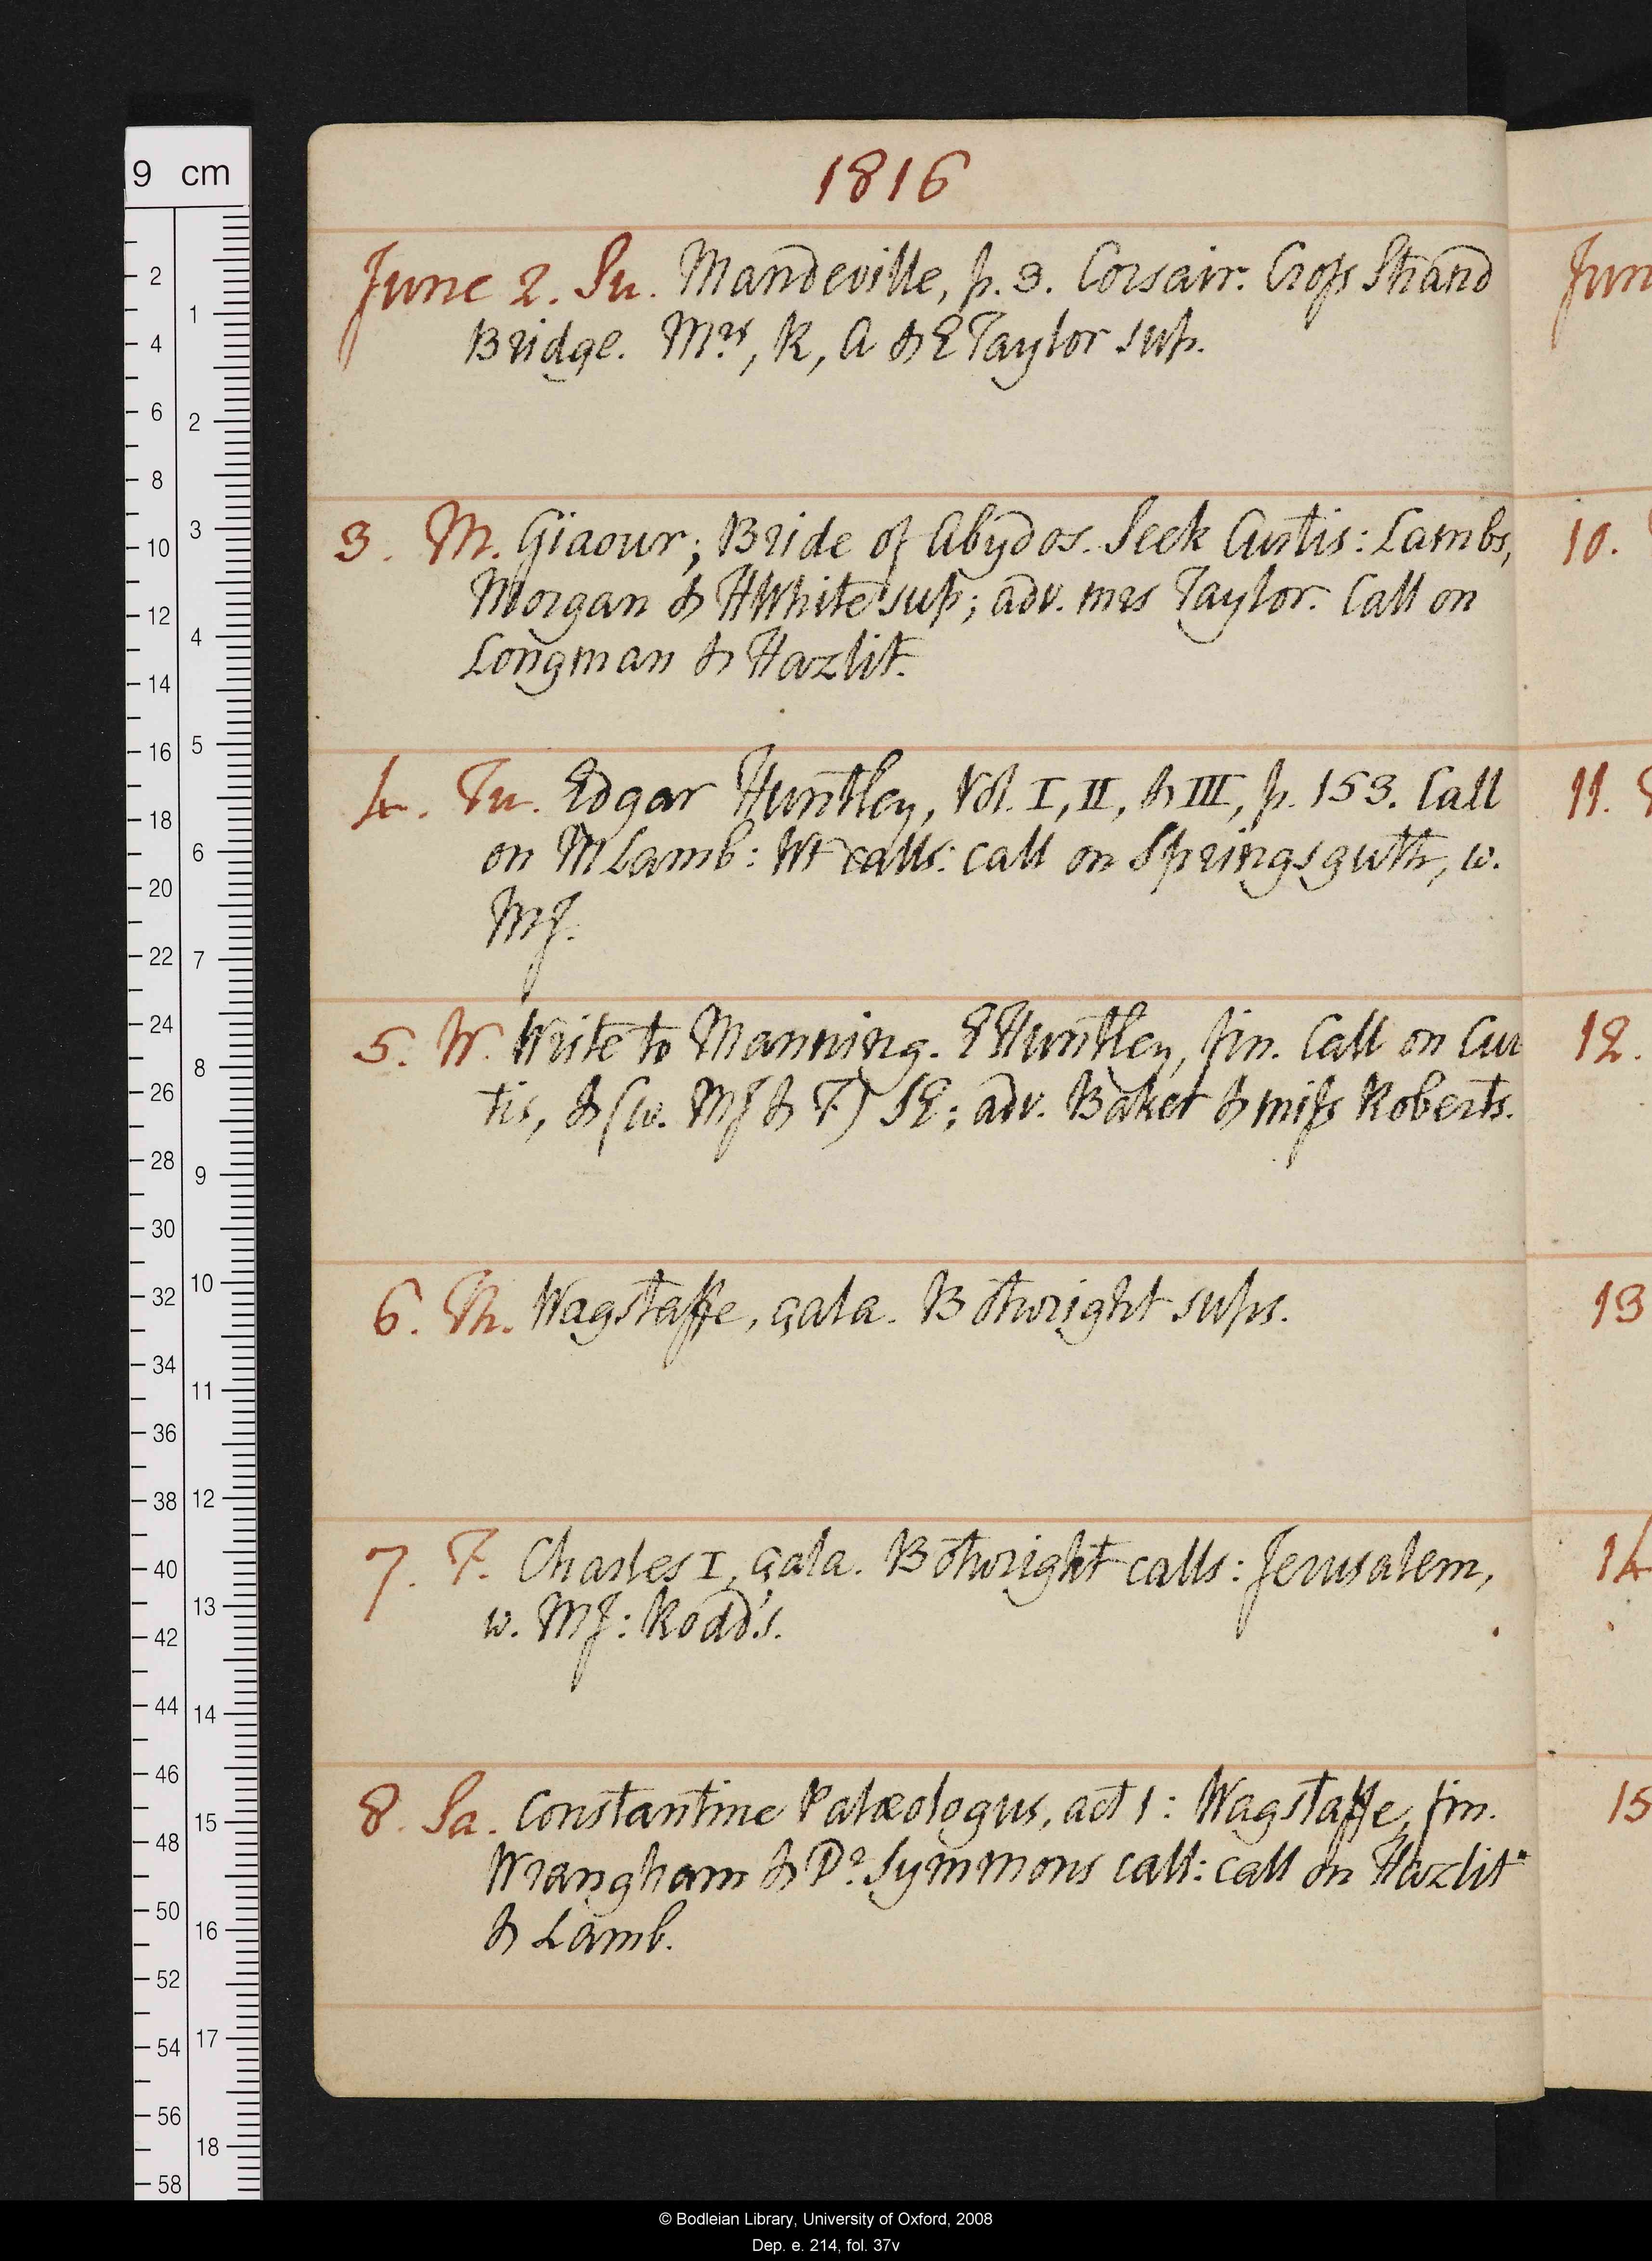 1816
June 2. Su. Mandeville, p. 3. Corsair. Cross Strand
Bridge. Mrs, R, A & E Taylor sup.
3. M. Giaour; Bride of Abydos. Seek Curtis: Lambs,
Morgan & HWhite sup; adv. mrs Taylor. Call on
Longman & Hazlit.
4. Tu. Edgar Huntley, Vol. I, II, & III, p. 153. Call
on M Lamb: Wt calls: call on Springsguth, w.
MJ.
5. W. Write to Manning. E Huntley, fin. Call on Cur
tis, & (w. MJ & F) SE; adv. Baker & miss Roberts.
6. Th. Wagstaffe, çala. Botwright sups.
7. F. Charles I, çala. Botwright calls: Jerusalem,
w. MJ: Rodd's.
8. Sa. Constantine Palæologus, act 1: Wagstaffe, fin.
Wrangham & Dr. Symmons call: call on Hazlit
& Lamb.
Jun
10.
11.
12.
13
14
15
9 cm
2
4
6
8
10
12
14
16
18
20
22
24
26
28
30
32
34
36
38
40
42
44
46
48
50
52
54
56
58
1
2
3
4
5
6
7
8
9
10
11
12
13
14
15
16
17
18
© Bodleian Library, University of Oxford, 2008
Dep. e. 214, fol. 37v